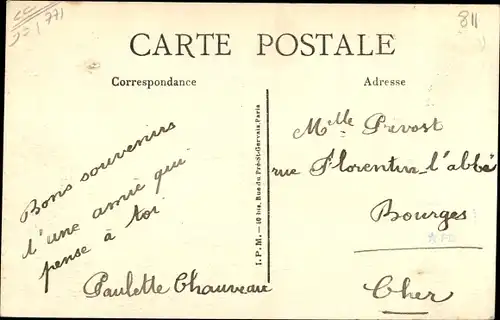 771
811
CARTE POSTALE
Correspondance
Adresse
Bons souvenirs
d'une amie qui
pense à toi
Paulette Chauveau
I.P.M. — 10 bis, Rue du Pré-St-Gervais, Paris
Melle Prevost
rue Florentin l'abbé
Bourges
Cher